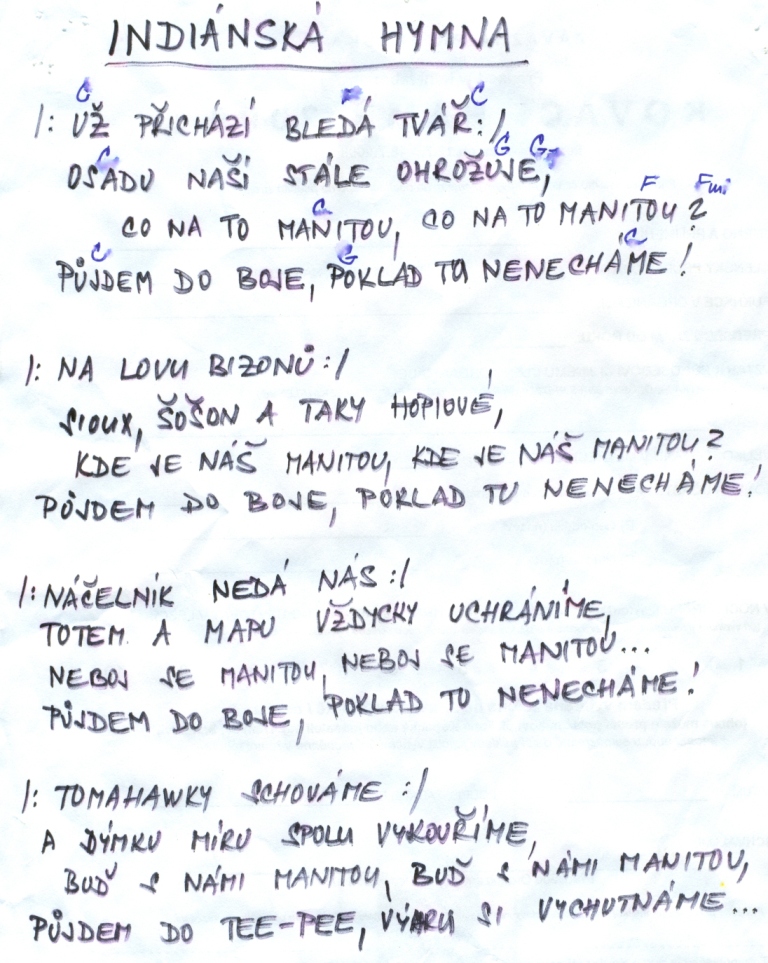 INDIÁNSKÁ HYMNA
C F C
/: UŽ PŘICHÁZÍ BLEDÁ TVÁŘ :/
C G G7
OSADU NAŠI STÁLE OHROŽUJE,
C F Fmi
CO NA TO MANITOU, CO NA TO MANITOU ?
C G C
PŮJDEM DO BOJE, POKLAD TU NENECHÁME !
/: NA LOVU BIZONŮ :/
SIOUX, ŠOŠON A TAKY HOPIOVÉ,
KDE JE NÁŠ MANITOU, KDE JE NÁŠ MANITOU ?
PŮJDEM DO BOJE, POKLAD TU NENECHÁME !
/: NÁČELNÍK NEDÁ NÁS :/
TOTEM A MAPU VŽDYCKY UCHRÁNÍME,
NEBOJ SE MANITOU, NEBOJ SE MANITOU...
PŮJDEM DO BOJE, POKLAD TU NENECHÁME !
/: TOMAHAWKY SCHOVÁME :/
A DÝMKU MÍRU SPOLU VYKOUŘÍME,
BUĎ S NÁMI MANITOU, BUĎ S NÁMI MANITOU,
PŮJDEM DO TEE-PEE, VÝARU SI VYCHUTNÁME...